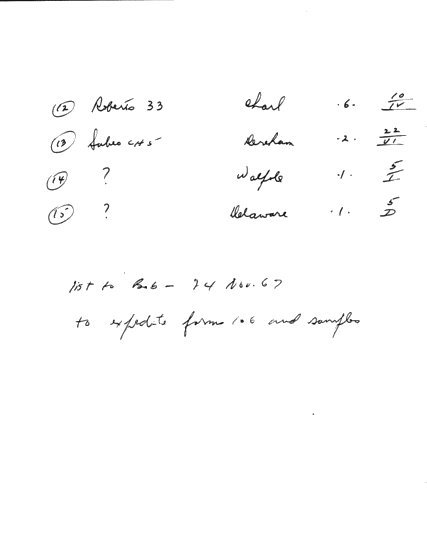 (12) Roberto 33 Charl - 6 - 10/IV
(13) CH 5 Dereham - 2 - 22/VI
(14) ? Walpole - 1 - 5/I
(15) ? Delaware - 1 - 5/D
list to Bob - 24 Nov. 67
to expedite forms 106 and samples